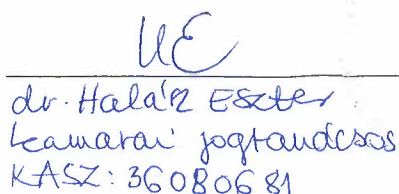 HE
dr. Halász Eszter
kamarai jogtanácsos
KASZ: 36080681